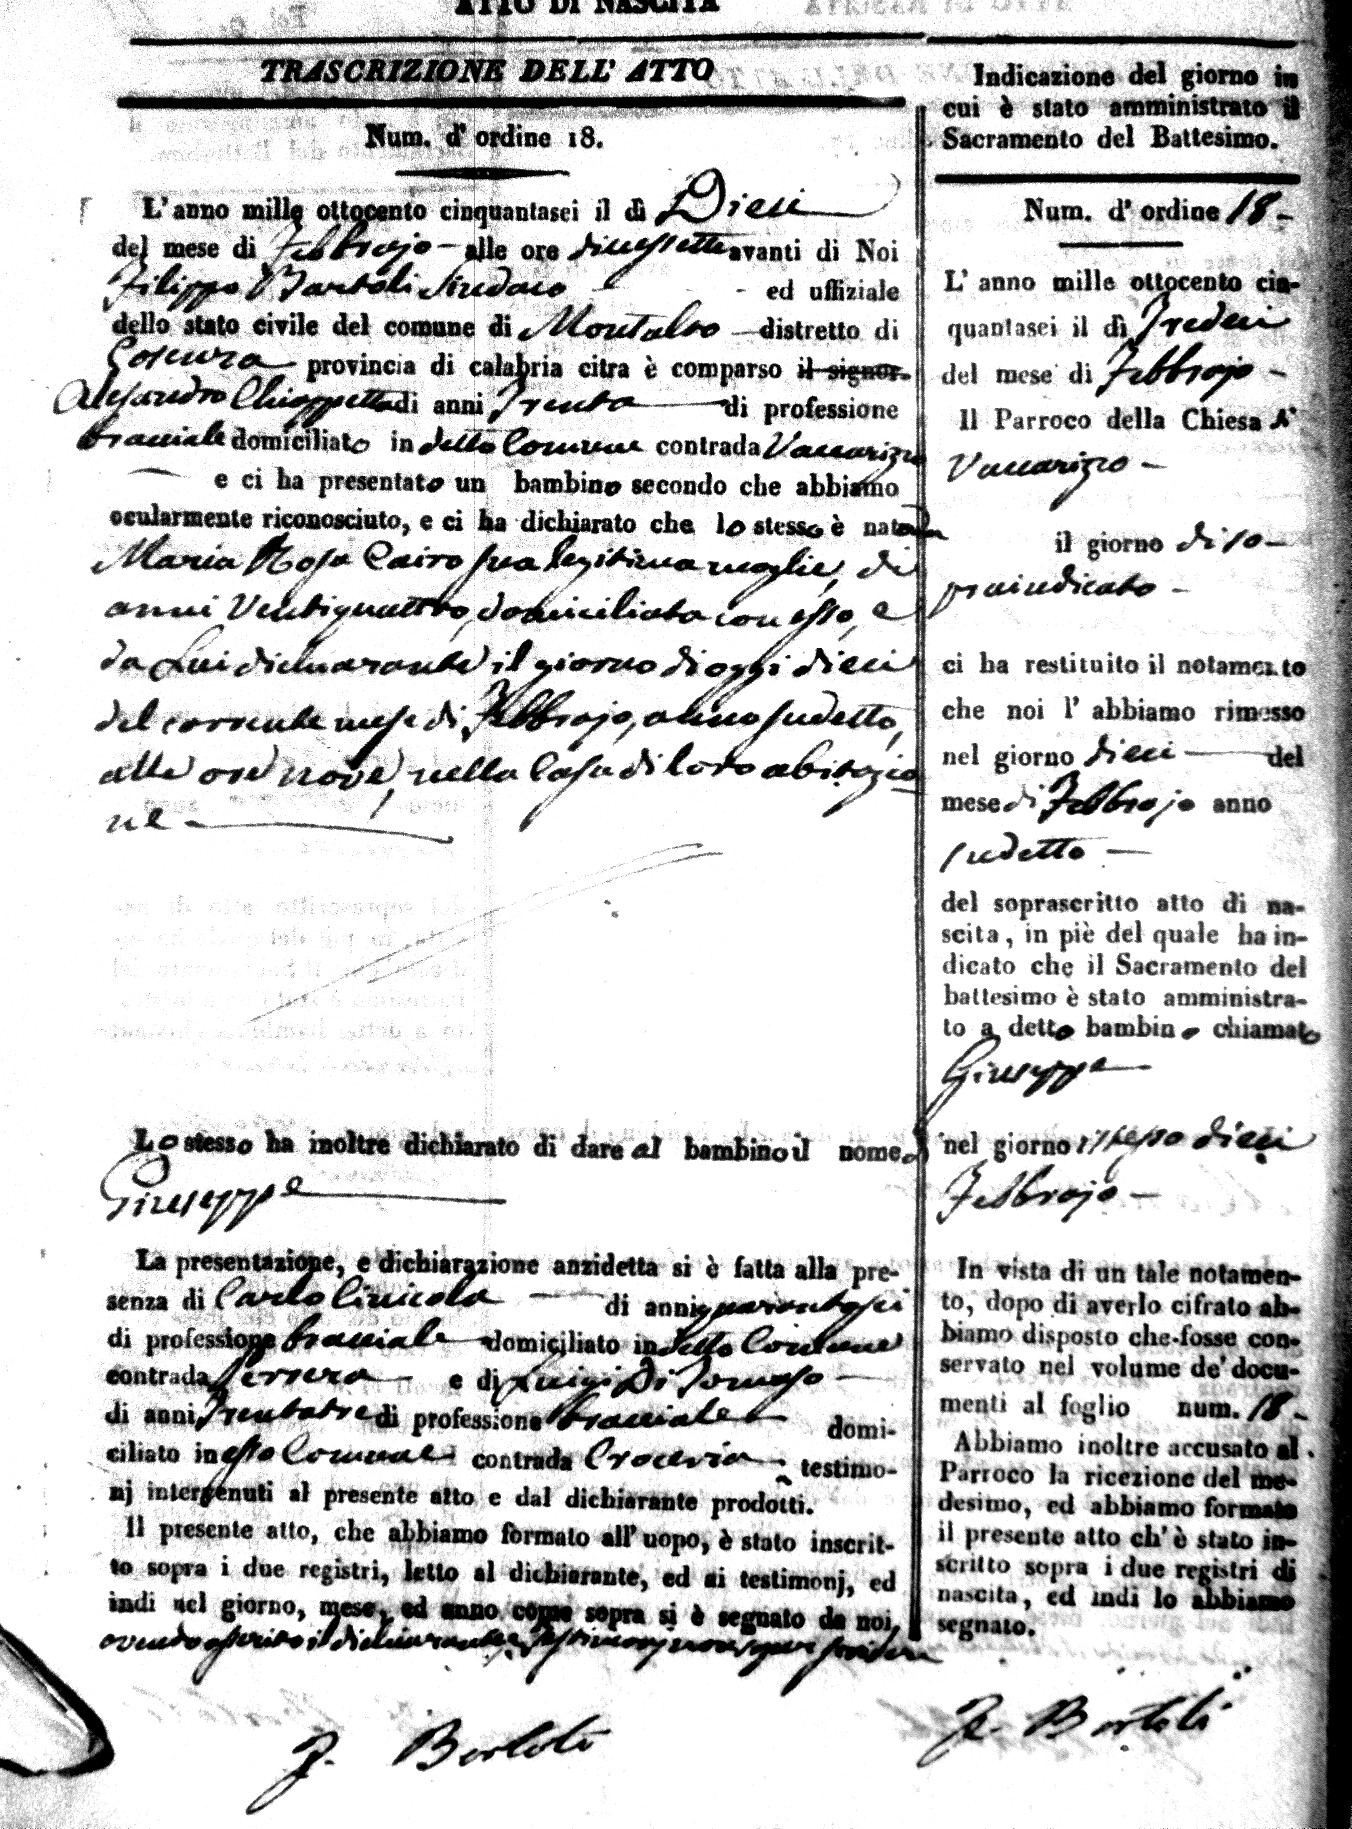 ATTO DI NASCITA
TRASCRIZIONE DELL' ATTO
Num. d' ordine 18.
L' anno mille ottocento cinquantasei il dì Dieci
del mese di Febbrajo alle ore diciessette avanti di Noi
Filippo Bartoli Sindaco ed uffiziale
dello stato civile del comune di Montalto distretto di
Cosenza provincia di calabria citra è comparso il signor
Alesandro Chiappetta di anni Trenta di professione
bracciale domiciliato in detto Comune contrada Vaccarizzo
e ci ha presentato un bambino secondo che abbiamo
ocularmente riconosciuto, e ci ha dichiarato che lo stesso è nato da
Maria Rosa Cairo sua legitima moglie, di
anni Ventiquattro, domiciliata con esso, e
da Lui dichiarante il giorno di oggi dieci
del corrente mese di Febbrajo, anno sudetto,
alle ore nove, nella Casa di loro abitazio
ne
Lo stesso ha inoltre dichiarato di dare al bambino il nome di
Giuseppe
La presentazione, e dichiarazione anzidetta si è fatta alla pre-
senza di Carlo di anni quarantasei
di professione bracciale domiciliato in detto Comune
contrada e di Luigi Di Tomaso
di anni Trentatre di professione bracciale domi-
ciliato in esso Comune contrada testimo-
nj intervenuti al presente atto e dal dichiarante prodotti.
Il presente atto, che abbiamo formato all' uopo, è stato inscrit-
to sopra i due registri, letto al dichiarante, ed ai testimonj, ed
indi nel giorno, mese, ed anno come sopra si è segnato da noi
avendo asserito il dichiarante, e Testimonj non saper scrivere
F. Bartoli
Indicazione del giorno in
cui è stato amministrato il
Sacramento del Battesimo.
Num. d' ordine 18
L' anno mille ottocento cin-
quantasei il dì Tredici
del mese di Febbrajo
Il Parroco della Chiesa di
Vaccarizzo
il giorno di so-
praindicato
ci ha restituito il notamento
che noi l' abbiamo rimesso
nel giorno dieci del
mese di Febbrajo anno
sudetto
del soprascritto atto di na-
scita, in piè del quale ha in-
dicato che il Sacramento del
battesimo è stato amministra-
to a detto bambino chiamato
Giuseppe
nel giorno istesso dieci
Febbrajo
In vista di un tale notamen-
to, dopo di averlo cifrato ab-
biamo disposto che fosse con-
servato nel volume de' docu-
menti al foglio num. 18
Abbiamo inoltre accusato al
Parroco la ricezione del me-
desimo, ed abbiamo formato
il presente atto ch' è stato in-
scritto sopra i due registri di
nascita, ed indi lo abbiamo
segnato.
F. Bartoli